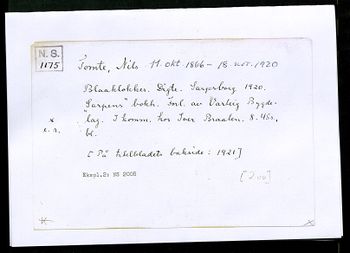 N. S.
1175
Tomte, Nils 11. okt. 1866 – 18. nov. 1920
Blaaklokker. Digte. Sarpsborg 1920.
"Sarpens" bokh. Forl. av Varteig Bygde-
lag. I komm. hos Iver Braaten. 8. 48s,
bl.
x
[På titelbladets bakside: 1921]
Ekspl.2: NS 2008